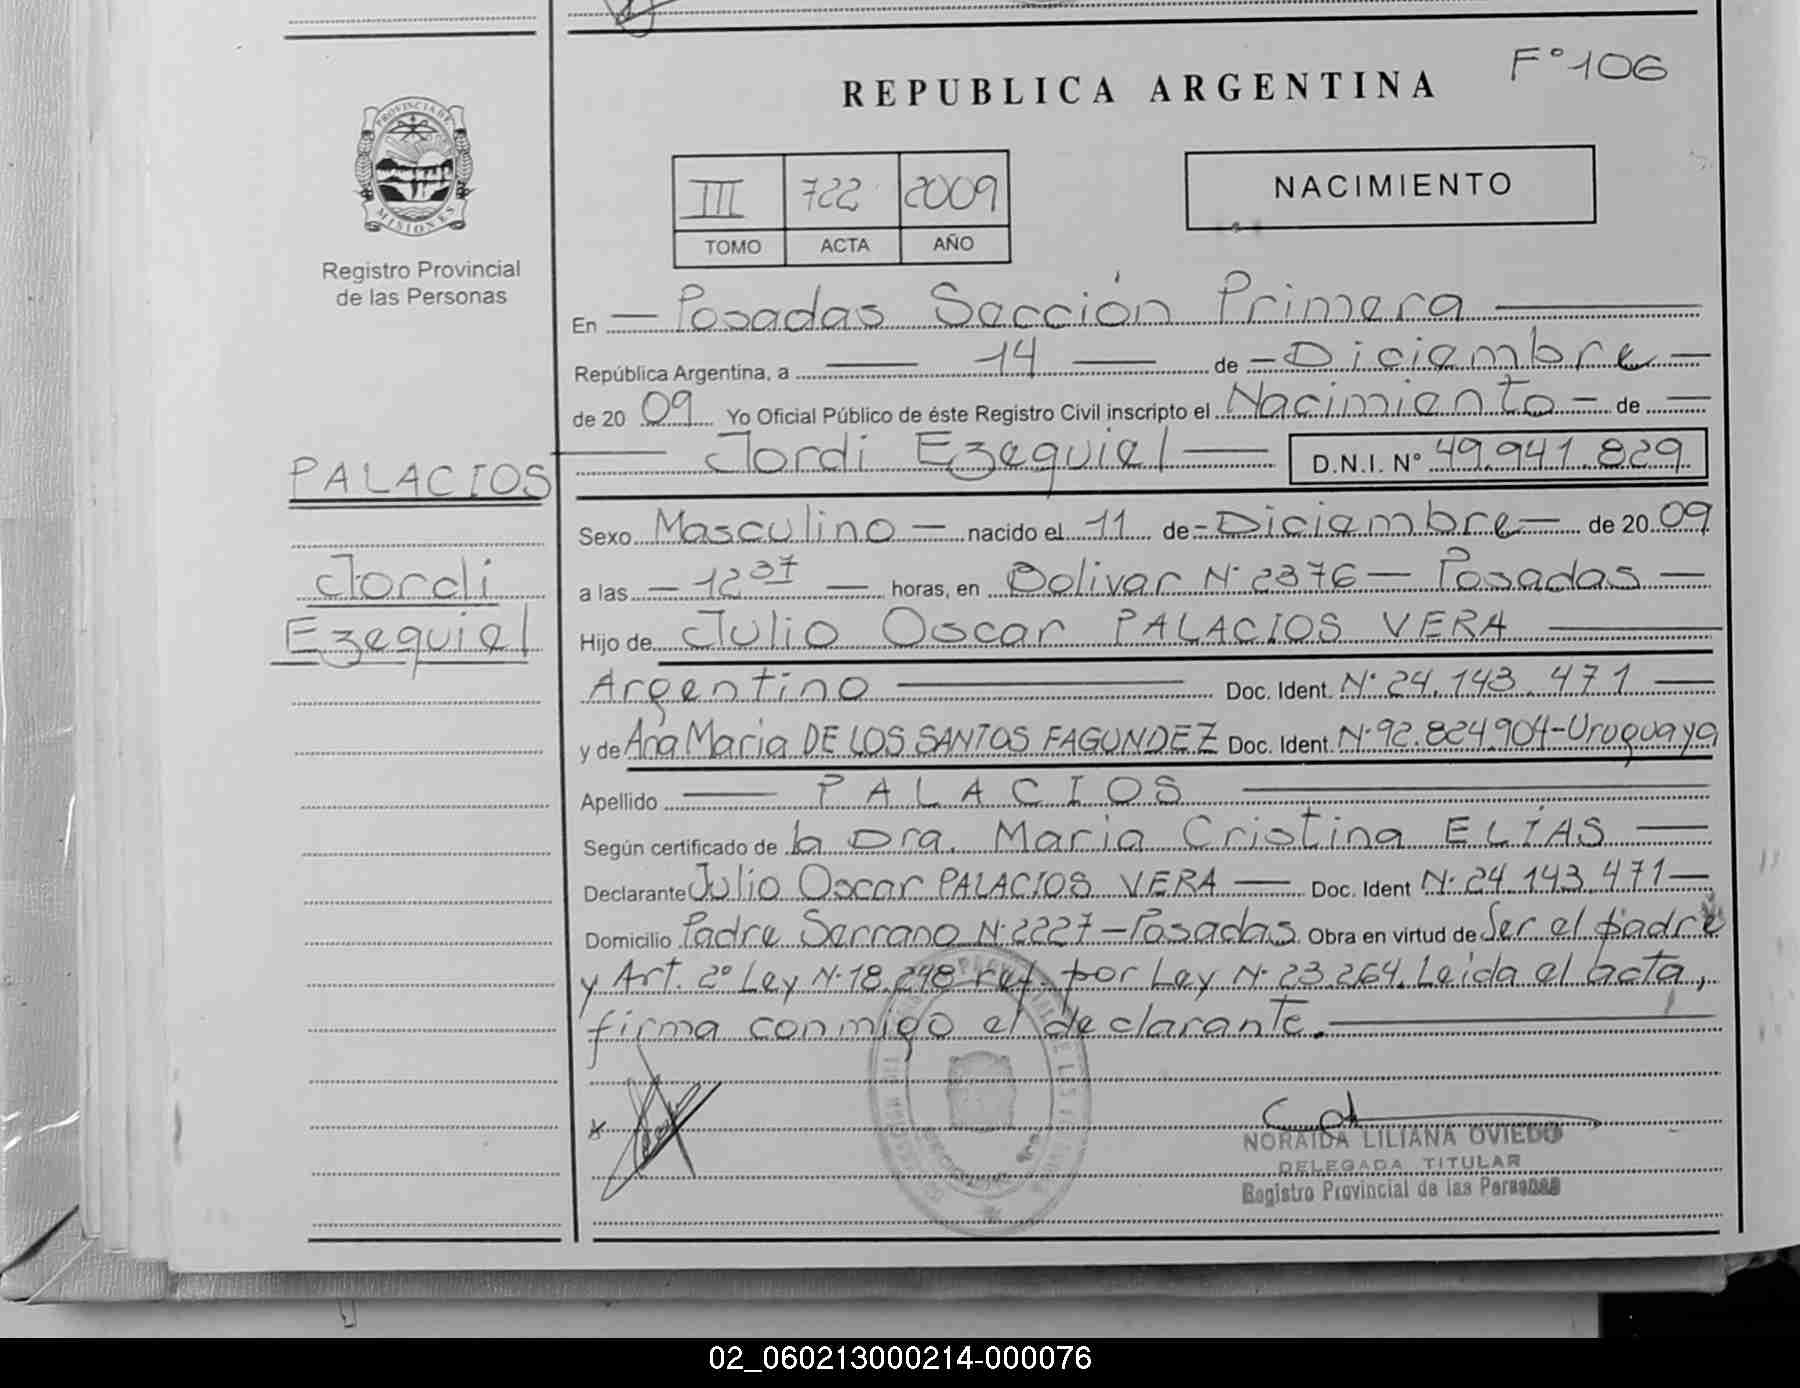 F° 106
REPUBLICA ARGENTINA
PROVINCIA DE
MISIONES
Registro Provincial
de las Personas
III 722 2009
TOMO ACTA AÑO
NACIMIENTO
En Posadas Sección Primera
República Argentina, a 14 de Diciembre
de 20 09 Yo Oficial Público de éste Registro Civil inscripto el Nacimiento de
Jordi Ezequiel D.N.I. N° 49.941.829
PALACIOS
Jordi
Ezequiel
Sexo Masculino nacido el 11 de Diciembre de 20 09
a las 12 37 horas, en Bolivar N° 2376 - Posadas
Hijo de Julio Oscar PALACIOS VERA
Argentino Doc. Ident. N° 24.143.471
y de Ana Maria DE LOS SANTOS FAGUNDEZ Doc. Ident. N° 92.824.904 - Uruguaya
Apellido PALACIOS
Según certificado de la Dra. Maria Cristina ELÍAS
Declarante Julio Oscar PALACIOS VERA Doc. Ident N° 24.143.471
Domicilio Padre Serrano N° 2227 - Posadas. Obra en virtud de Ser el padre
y Art. 2° Ley N° 18.248 ref. por Ley N° 23.264. Leida el acta,
firma conmigo el declarante.
NORAIDA LILIANA OVIEDO
DELEGADA TITULAR
Registro Provincial de las Personas
02_060213000214-000076